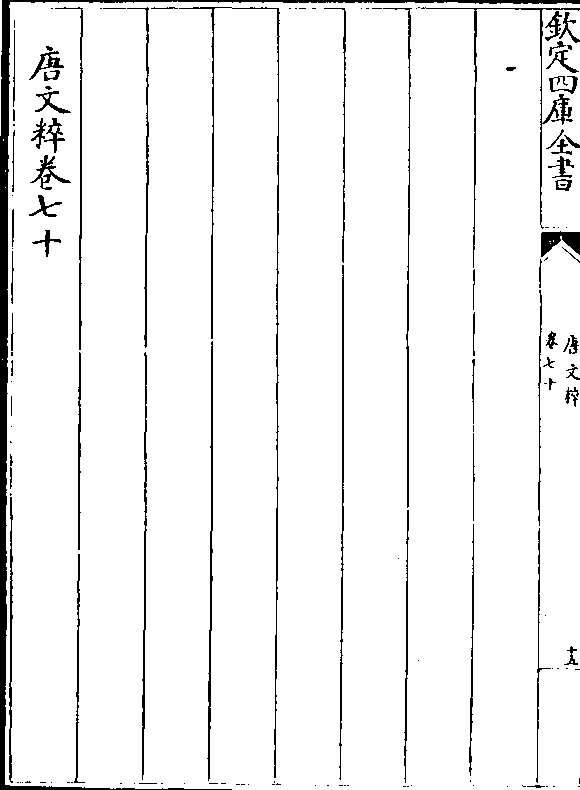 欽定四庫全書
唐文粹
卷七十
十五
唐文粹卷七十